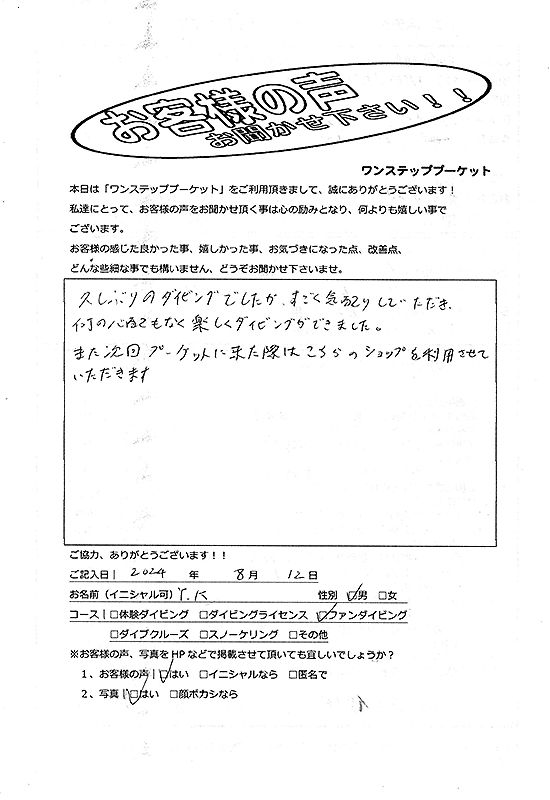 お客様の声
お聞かせ下さい!!
ワンステッププーケット
本日は「ワンステッププーケット」をご利用頂きまして、誠にありがとうございます!
私達にとって、お客様の声をお聞かせ頂く事は心の励みとなり、何よりも嬉しい事で
ございます。
お客様の感じた良かった事、嬉しかった事、お気づきになった点、改善点、
どんな些細な事でも構いません、どうぞお聞かせ下さいませ。
久しぶりのダイビングでしたが、すごく気配りしていただき、
何の心配もなく楽しくダイビングができました。
また次回プーケットに来た際はこちらのショップを利用させて
いただきます
ご協力、ありがとうございます!!
ご記入日| 2024 年 8月 12日
お名前(イニシャル可) Y.K 性別 ☑男 □女
コース|□体験ダイビング □ダイビングライセンス ☑ファンダイビング
□ダイブクルーズ □スノーケリング □その他
※お客様の声、写真をHPなどで掲載させて頂いても宜しいでしょうか?
1、お客様の声|☑はい □イニシャルなら □匿名で
2、写真|☑はい □顔ボカシなら